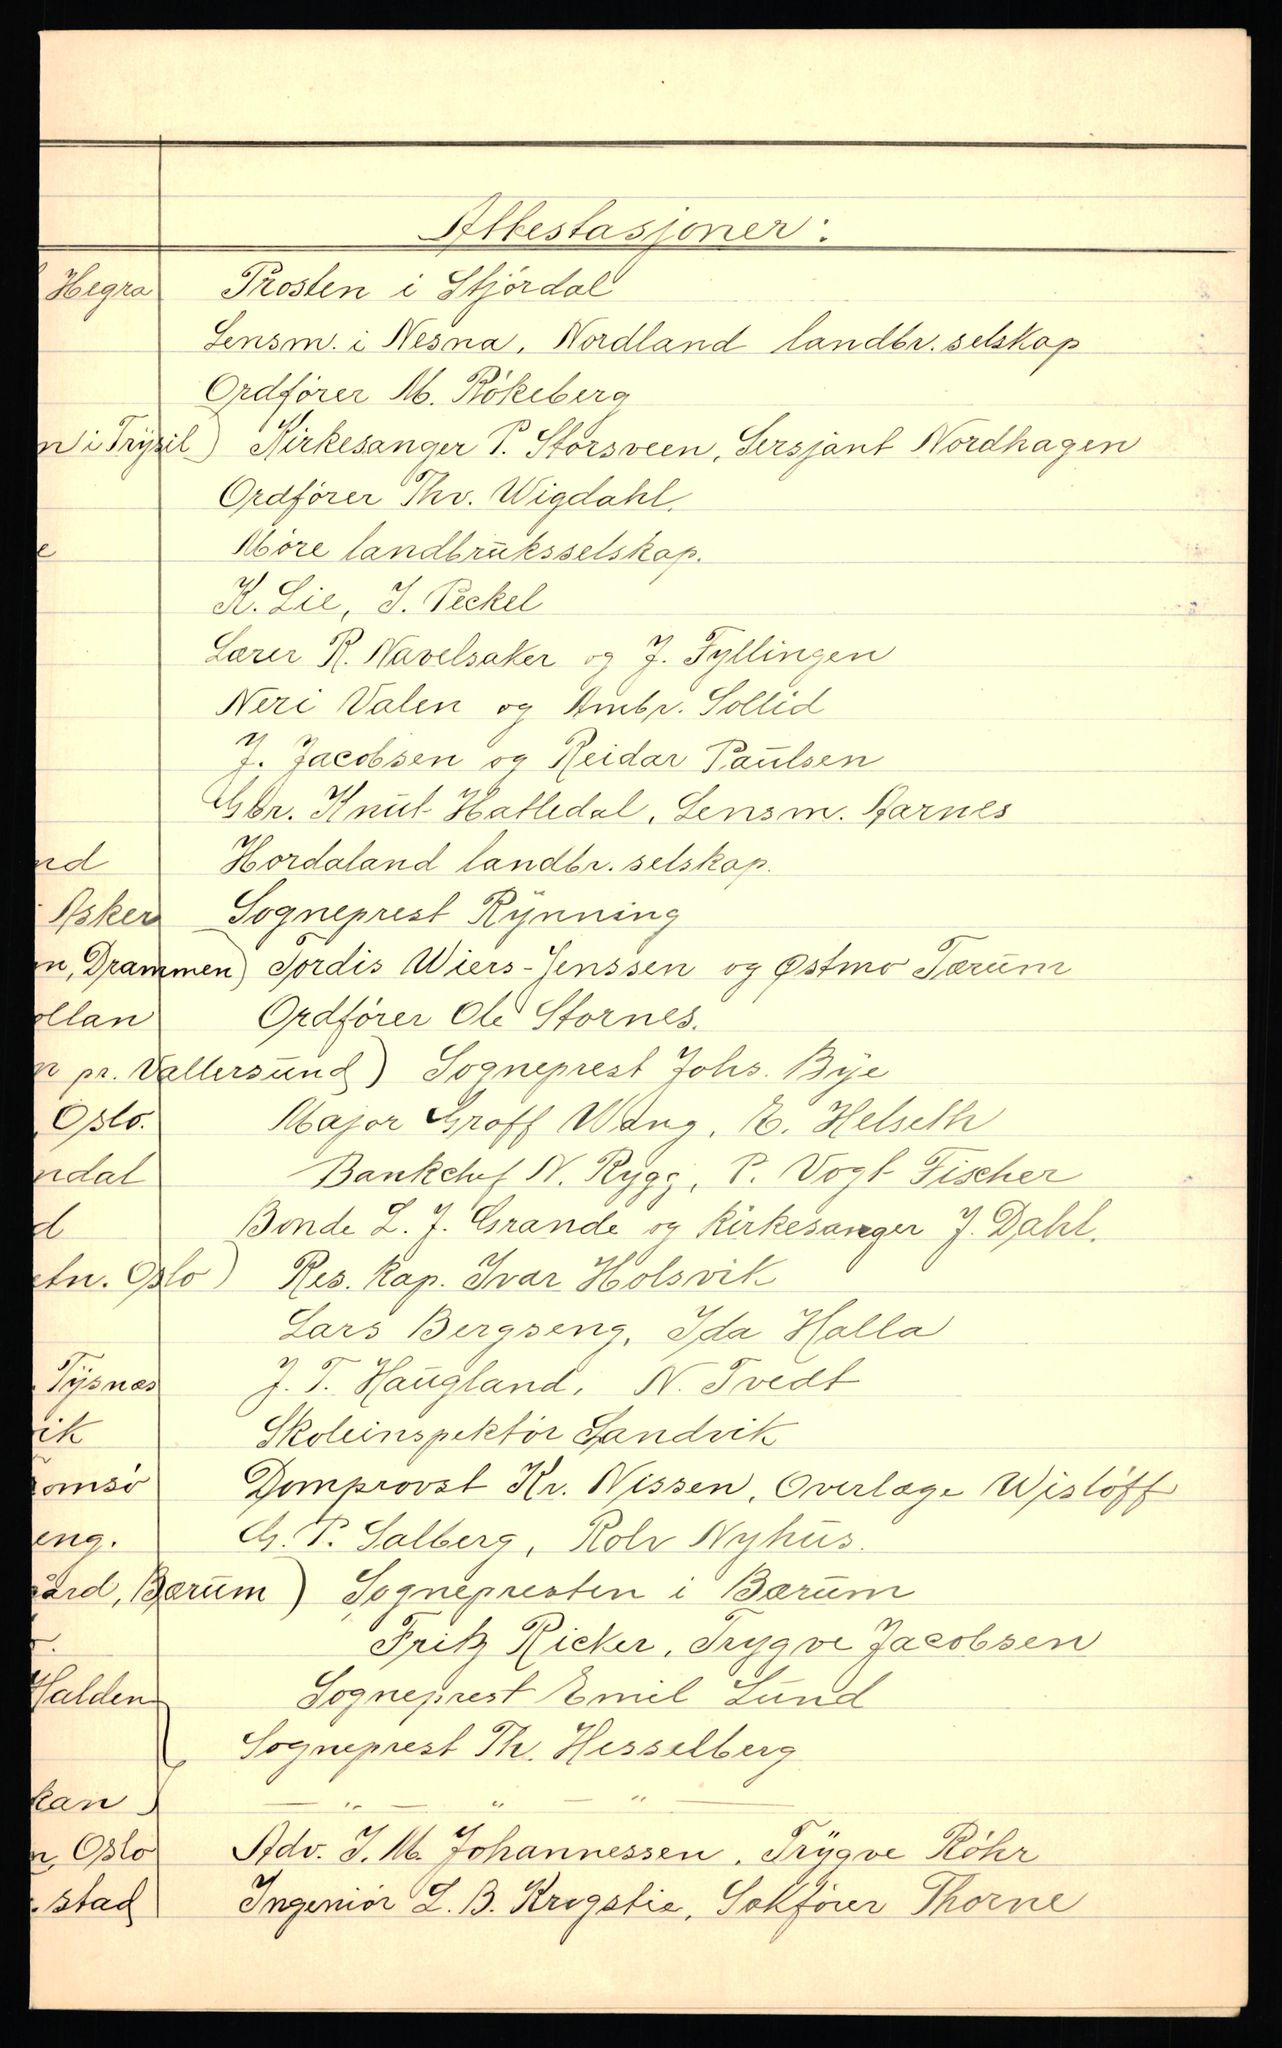 Attestasjoner:
Hegra Prosten i Stjórdal
Lensm. i Nesna, Nordland landbr. selskap
Ordfórer M. Rókeberg
n i Trysil) Kirkesanger P. Storsveen, Sersjant Nordhagen
Ordfórer Thv. Wigdahl.
e Móre landbruksselskap.
K. Lie, J. Peckel
Lærer R. Navelsaker og J. Fyllingen
Neri Valen og Ambr. Sollid
J. Jacobsen og Reidar Paulsen
Gbr. Knut Hatledal, Lensm. Aarnes
nd Hordaland landbr. selskap.
Asker Sogneprest Rynning
n, Drammen) Tordis Wiers-Jenssen og Østmo Tærum
ollan Ordfórer Ole Stornes.
n pr. Vallersund) Sogneprest Johs. Bye
Oslo. Major Groff Wang, E. Helseth
ndal Bankchef N. Rygg, P. Vogt Fischer
d Bonde L. J. Grande og kirkesanger J. Dahl.
etn. Oslo) Res. kap. Ivar Holsvik
Lars Bergseng, Ida Halla
. Tysnæs J. T. Haugland, N. Tvedt
ik Skoleinspektór Sandvik
omsó Domprovst Kr. Nissen, Overlæge Wislóff
eng. G. P. Salberg, Rolv Nyhus.
ård, Bærum) Sognepresten i Bærum
Fritz Ricker, Trygve Jacobsen
Halden Sogneprest Emil Lund
Sogneprest Th. Hesselberg
kan) — " — " — " —
n, Oslo Adv. J. M. Johannessen, Trygve Róhr
. stad Ingeniór L. B. Krogstie, Sakfórer Thorne